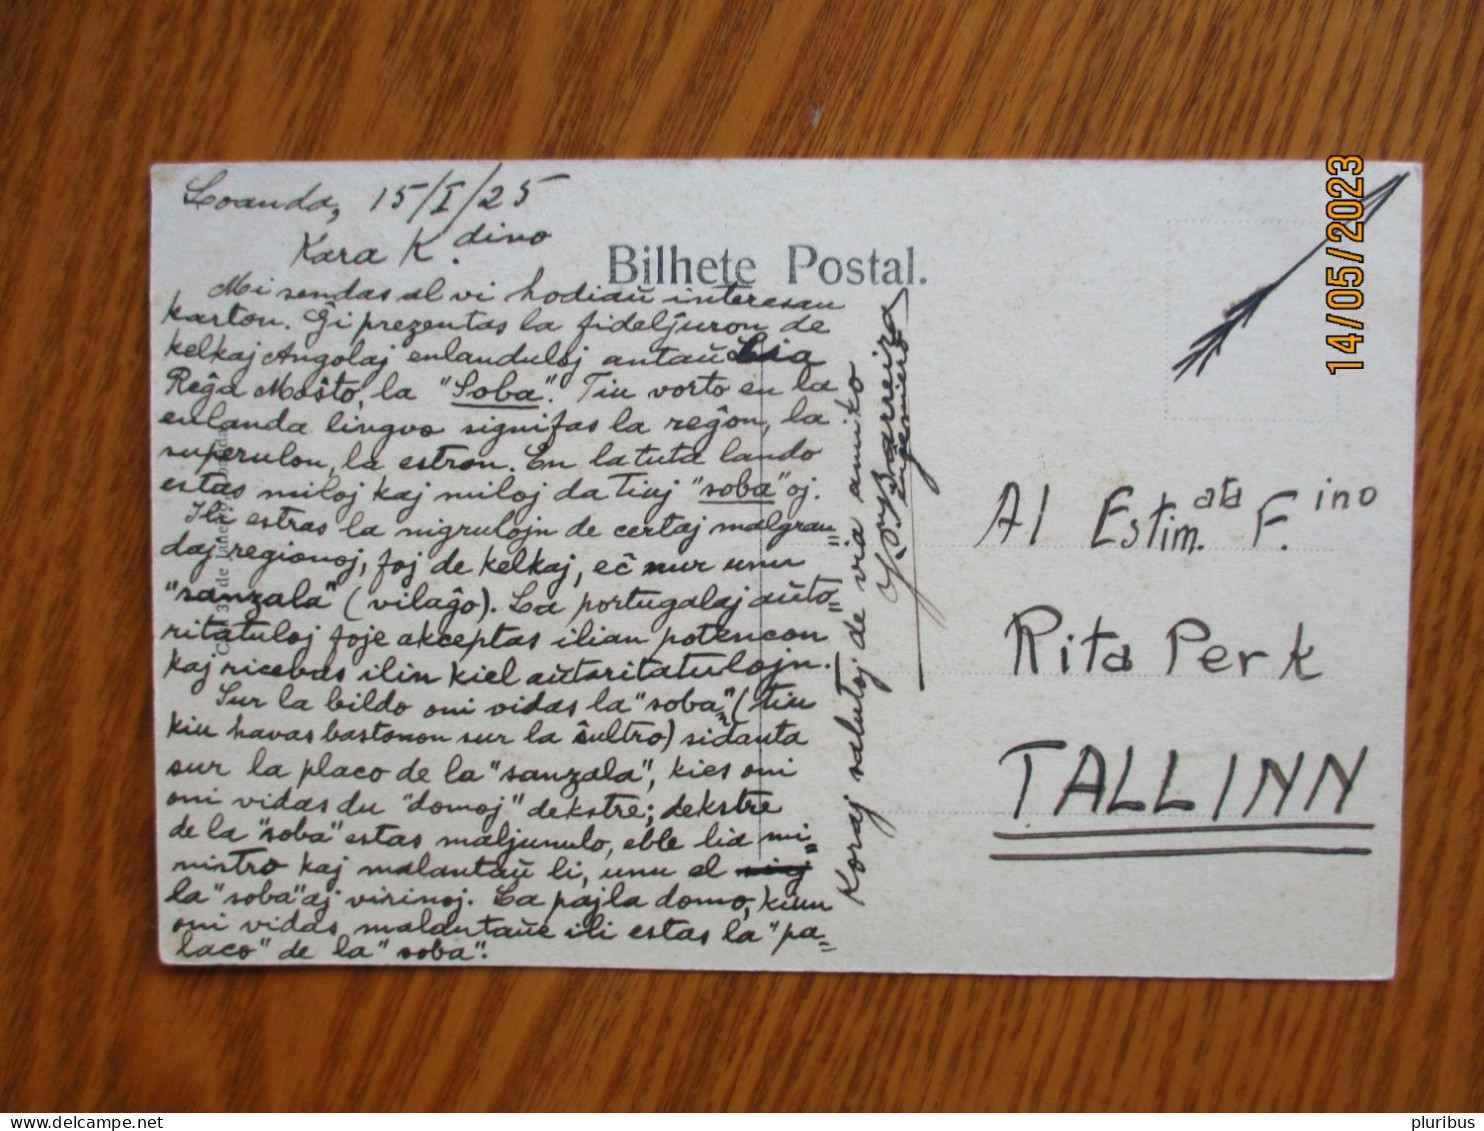 Loanda, 15/I/25
Kara K.dino
Bilhete Postal.
Mi sendas al vi hodiaŭ interesan
karton. Ĝi prezentas la fideljuron de
kelkaj Angolaj enlanduloj antaŭ Lia
Reĝa Moŝto, la "Soba". Tiu vorto en la
enlanda lingvo signifas la reĝon, la
superulon, la estron. En la tuta lando
estas miloj kaj miloj da tiaj "soba"oj.
Ili estras la nigrulojn de certaj malgran=
daj regionoj, foj de kelkaj, eĉ nur unu
"sanzala" (vilaĝo). La portugalaj aŭto=
ritatuloj foje akceptas ilian potencon
kaj ricebas ilin kiel aŭtoritatulojn.
Sur la bildo oni vidas la "soba" (tiu
kiu havas bastonon sur la ŝultro) sidanta
sur la placo de la "sanzala", kies oni
oni vidas du "domoj" dekstre; dekstre
de la "soba" estas maljunulo, eble lia mi=
nistro kaj malantaŭ li, unu el
la "soba"aj virinoj. La pajla domo, kiun
oni vidas malantaŭe ili estas la "pa=
laco" de la "soba".
Koraj salutoj de via amiko
Barreira
Al Estim.ata F.ino
Rita Perk
TALLINN
14/05/2023
pluribus